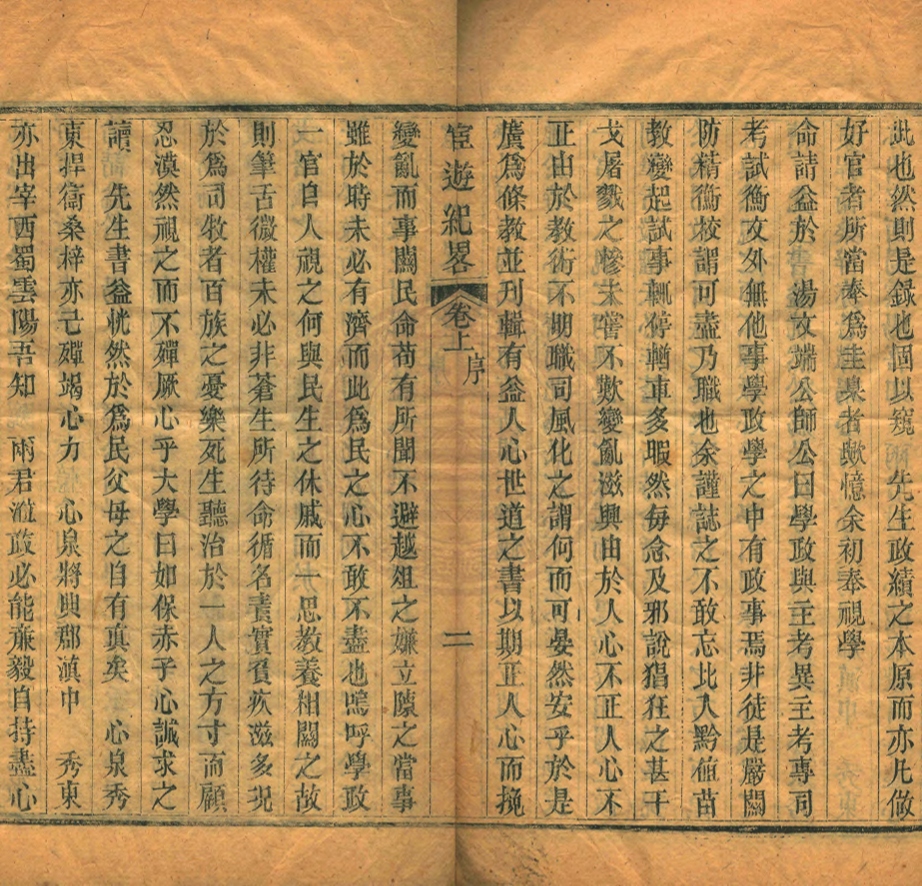 此也然則是錄也固以窺　先生政績之本原而亦凡做
好官者所當奉爲圭臬者歟憶余初奉視學
命請益於　湯文端公師公曰學政與主考異主考專司
考試衡文外無他事學政學之中有政事焉非徒是嚴關
防精衡校謂可盡乃職也余謹誌之不敢忘比入黔値苗
教變起試事輒停輶車多暇然每念及邪說猖狂之甚干
戈屠戮之慘未嘗不歎變亂滋興由於人心不正人心不
正由於教術不期職司風化之謂何而可晏然安乎於是
廣爲條教並刊輯有益人心世道之書以期正人心而挽
宦遊紀畧　卷上　序　二
變亂而事關民命苟有所聞不避越俎之嫌立陳之當事
雖於時未必有濟而此爲民之心不敢不盡也嗚呼學政
一官自人視之何與民生之休戚而一思教養相關之故
則筆舌微權未必非蒼生所待命循名責實負疚滋多況
於爲司牧者百族之憂樂死生聽治於一人之方寸而顧
忍漠然視之而不殫厥心乎大學曰如保赤子心誠求之
讀　先生書益恍然於爲民父母之自有眞矣　心泉秀
東捍衞桑梓亦已殫竭心力　心泉將典郡滇中　秀東
亦出宰西蜀雲陽吾知　兩君蒞政必能廉毅自持盡心